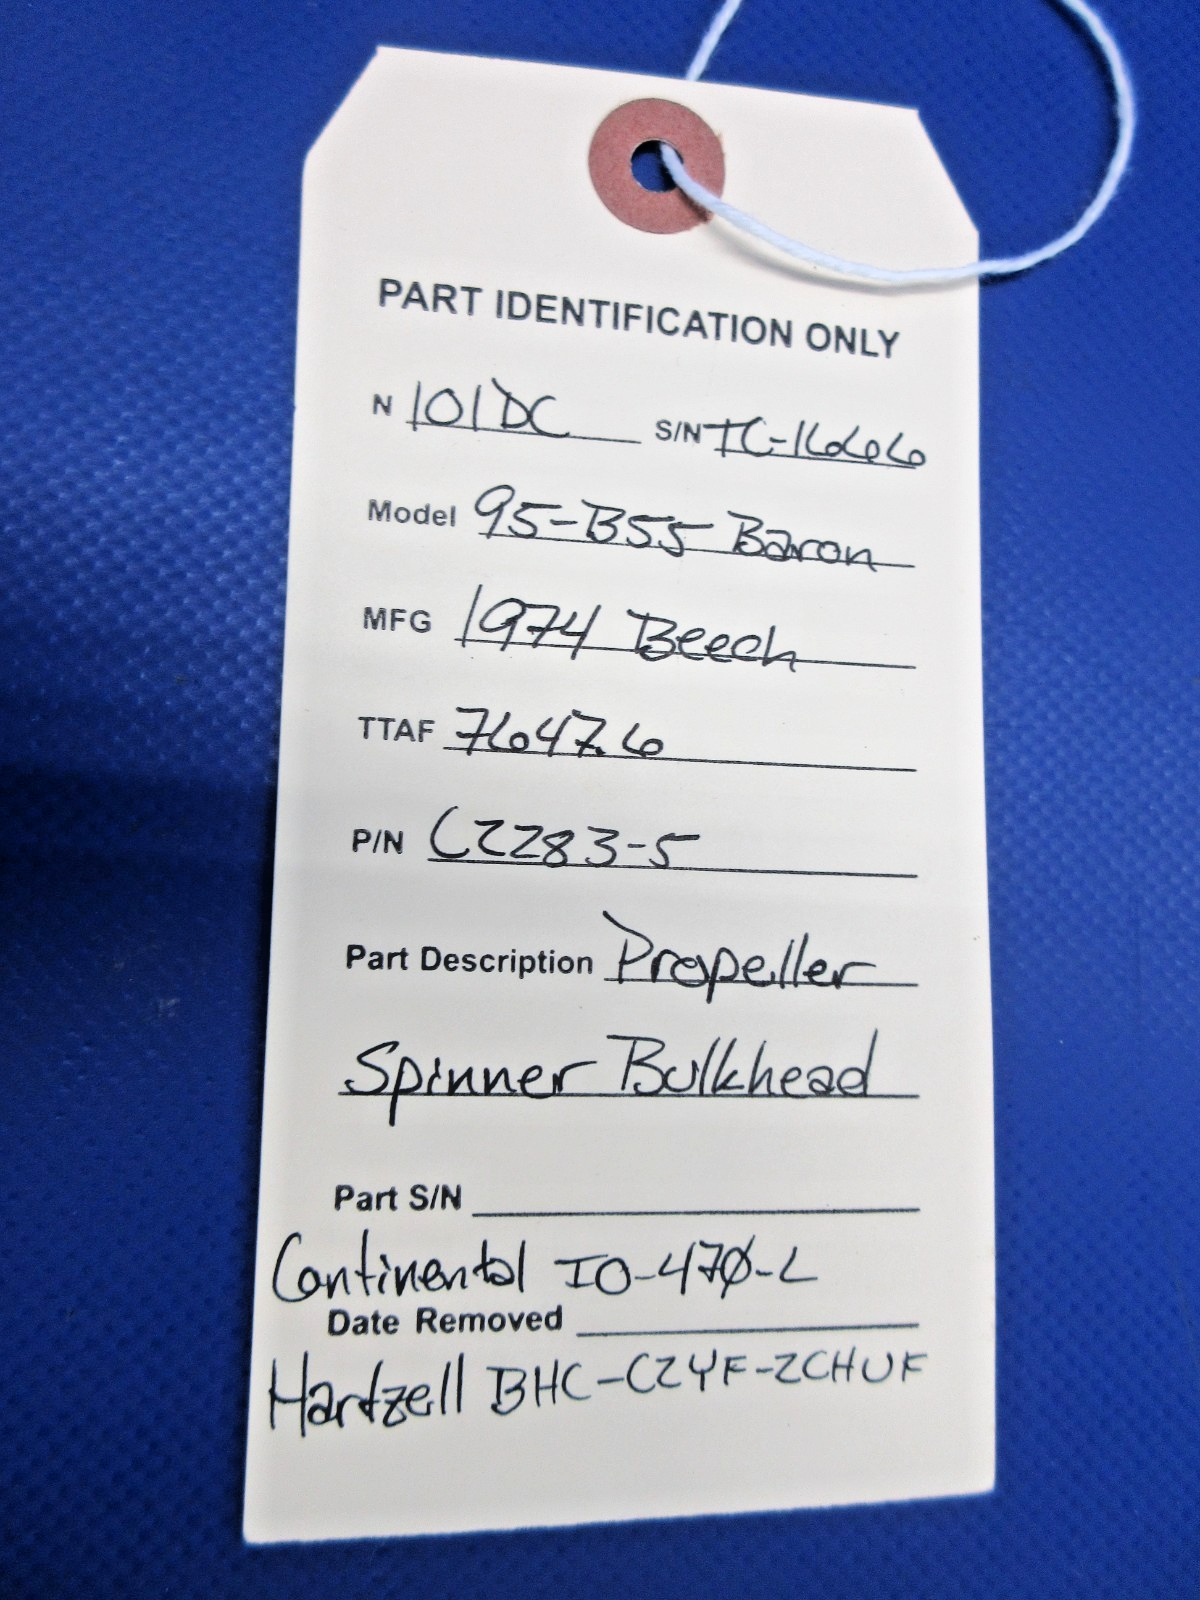 PART IDENTIFICATION ONLY
N 101DC S/N TC-1666
Model 95-B55 Baron
MFG 1974 Beech
TTAF 7647.6
P/N C2283-5
Part Description Propeller
Spinner Bulkhead
Part S/N
Continental IO-470-L
Date Removed
Hartzell BHC-C2YF-2CHUF